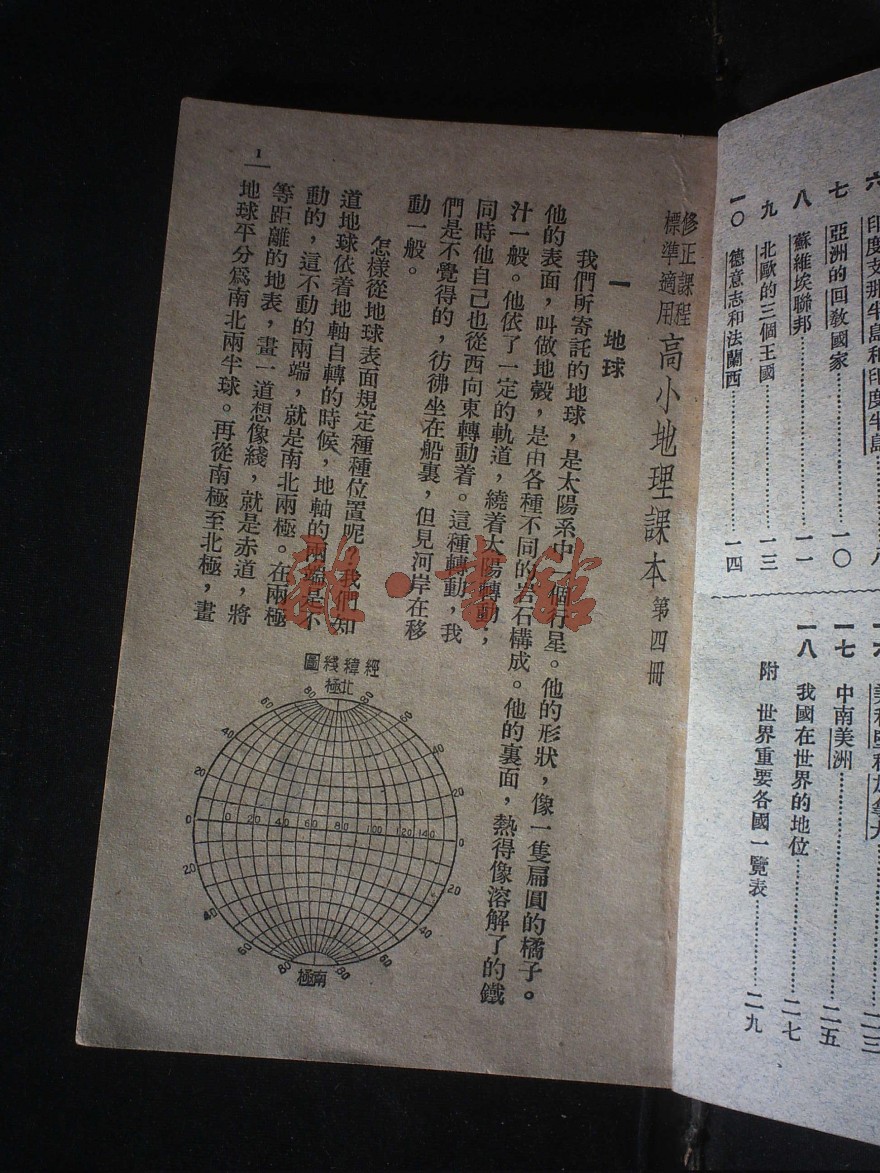 六 印度支那半島和印度半島………八
七 亞洲的回教國家………一〇
八 蘇維埃聯邦………一一
九 北歐的三個王國………一三
一〇 德意志和法蘭西………一四
一七 中南美洲………二五
一八 我國在世界的地位………二七
附 世界重要各國一覽表………二九
修正課程
標準適用
高小地理課本 第四冊
一 地球
我們所寄託的地球，是太陽系中一個行星。他的形狀，像一隻扁圓的橘子。
他的表面，叫做地殼，是由各種不同的岩石構成。他的裏面，熱得像溶解了的鐵
汁一般。他依了一定的軌道，繞着太陽轉動；
同時他自己也從西向東轉動着。這種轉動，我
們是不覺得的，彷彿坐在船裏，但見河岸在移
動一般。
怎樣從地球表面規定種種位置呢，我們知
道地球依着地軸自轉的時候，地軸的兩端是不
動的，這不動的兩端，就是南北兩極。在兩極
等距離的地表，畫一道想像綫，就是赤道，將
地球平分爲南北兩半球。再從南極至北極，畫
1
圖綫緯經
極北
80 80
60 60
40 40
20 20
0 0 20 40 60 80 100 120 140 0
20 20
40 40
60 60
80 80
極南
雜·書館